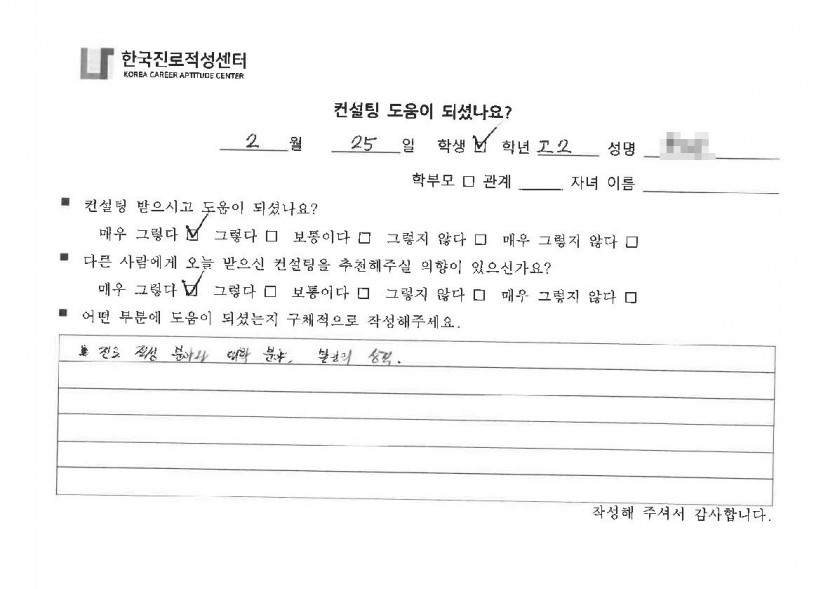 한국진로적성센터
KOREA CAREER APTITUDE CENTER
컨설팅 도움이 되셨나요?
2 월 25 일 학생 ☑ 학년 고2 성명
학부모 □ 관계 자녀 이름
■ 컨설팅 받으시고 도움이 되셨나요?
매우 그렇다 ☑ 그렇다 □ 보통이다 □ 그렇지 않다 □ 매우 그렇지 않다 □
■ 다른 사람에게 오늘 받으신 컨설팅을 추천해주실 의향이 있으신가요?
매우 그렇다 ☑ 그렇다 □ 보통이다 □ 그렇지 않다 □ 매우 그렇지 않다 □
■ 어떤 부분에 도움이 되셨는지 구체적으로 작성해주세요.
진로 적성 분야와 대학 분야,
작성해 주셔서 감사합니다.